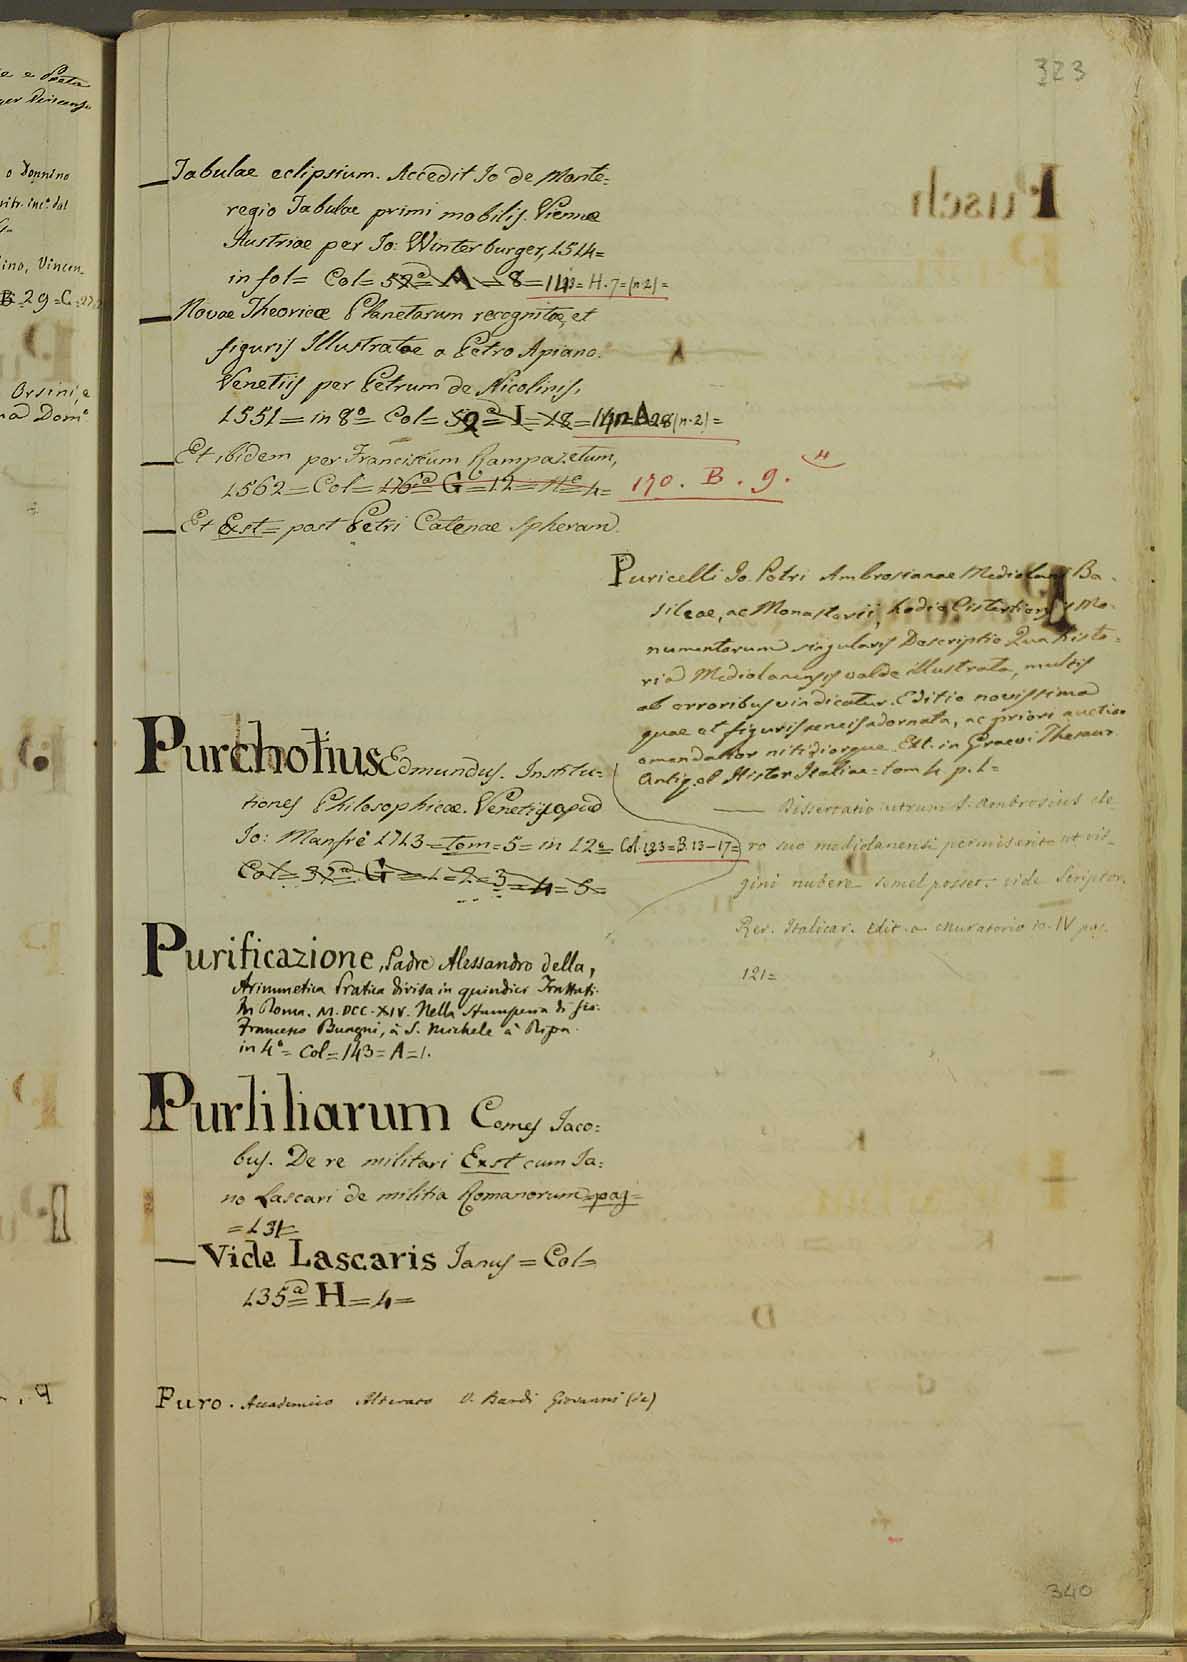 323
Tabulae eclipsium. Accedit Io de Monte=
regio Tabulae primi mobilis. Viennae
Austriae per Io: Winterburger, 1514=
in fol= Col= 52a= A = 8 = 143= H. 7=(n.2)=
Novae Theoricae Planetarum recognitae, et
figuris Illustratae a Petro Apiano.
Venetiis per Petrum de Nicolinis,
1551= in 8o Col= I= 18= (n.2)=
Et ibidem per Franciscum Rampazetum,
1562= Col= 176a= G=12= 4= 170. B. 9.
Et Exst= post Petri Catenae Spheram.
Puricelli Jo. Petri Ambrosianae Mediolani Ba-
silicae, ac Monasterii, hodie Cistertiensis Mo-
numentorum singularis Descriptio Qua histo=
ria Mediolanensis valde illustrata, multis
ab erroribus vindicatur. Editio novissima
quae et figuris aeneis adornata, ac priori auctior
emendatior nitidiorque. Ext. in Graevi Thesaur.
Antiq. et Histor Italiae= tom 4 p. 1=
— Dissertatio utrum S. Ambrosius cle
ro suo mediolanensi permiserit ut vir_
gini nubere semel posset. vide Scriptor.
Rer. Italicar. edit. a Muratorio to. IV pag.
121=
Purchotius Edmundus. Institu=
tiones Philosophicae. Venetiis apud
Io: Manfrè 1713= tom= 5= in 12o= Col. 123= B. 13-17=
Col= 32a= G= 1=2=3=4=5=
Purificazione, Padre Alessandro della,
Arimmetica Pratica divisa in quindici Trattati.
In Roma. M.DCC.XIV. Nella Stamperia di Gio:
Francesco Buagni, à S. Michele à Ripa.
in 4o= Col= 143= A= 1.
Purliliarum Comes Jaco=
bus. De re militari Exst cum Ja=
no Lascari de militia Romanorum= pag=
=131=
— Vide Lascaris Janus= Col=
135a= H= 4=
Puro. Accademico Alterato V. Bardi Giovanni (de)
340